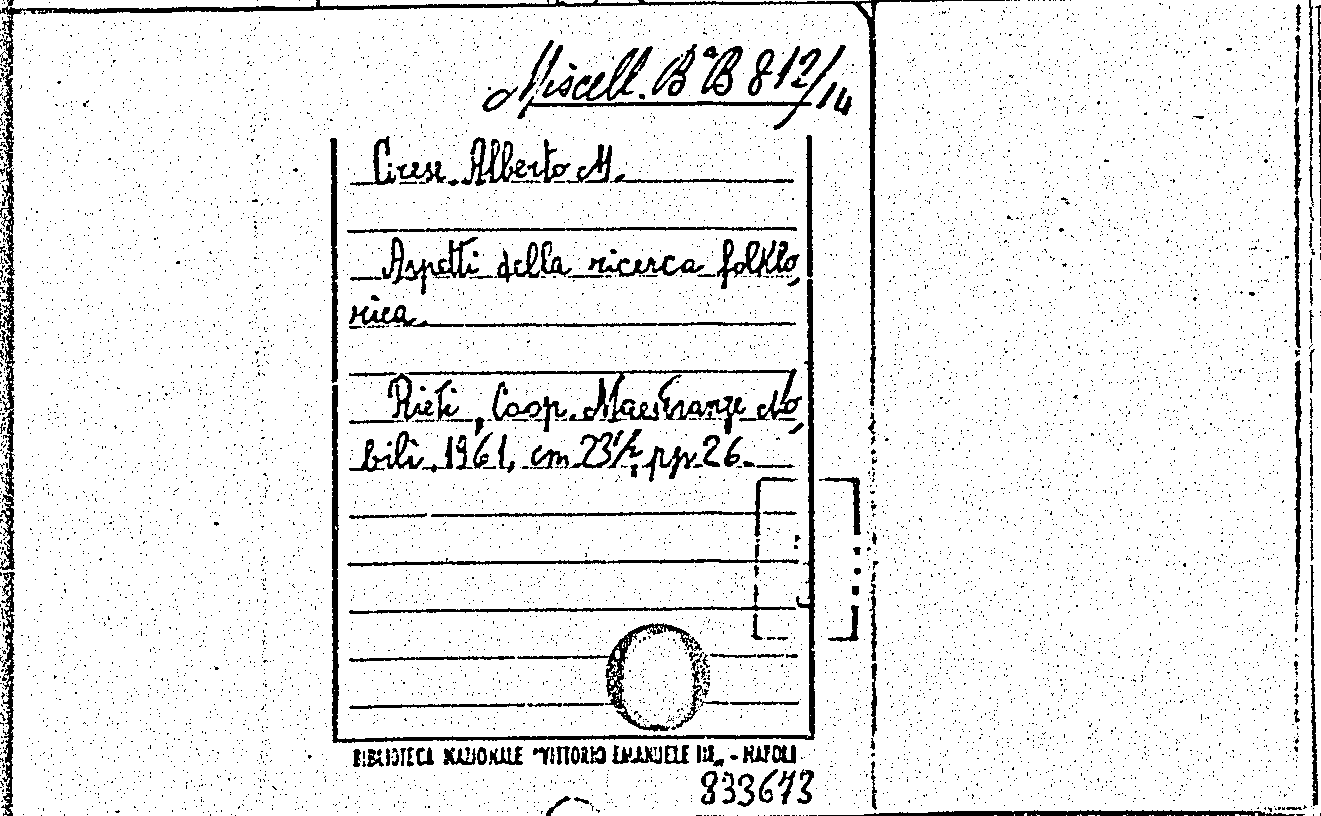 Miscell. Bª B 812/14
Cirese. Alberto M.
Aspetti della ricerca folklo,
rica.
Rieti, Coop. Maestranze No,
bili. 1961, cm 23½, pp. 26.
BIBLIOTECA NAZIONALE "VITTORIO EMANUELE III„ - NAPOLI
833673